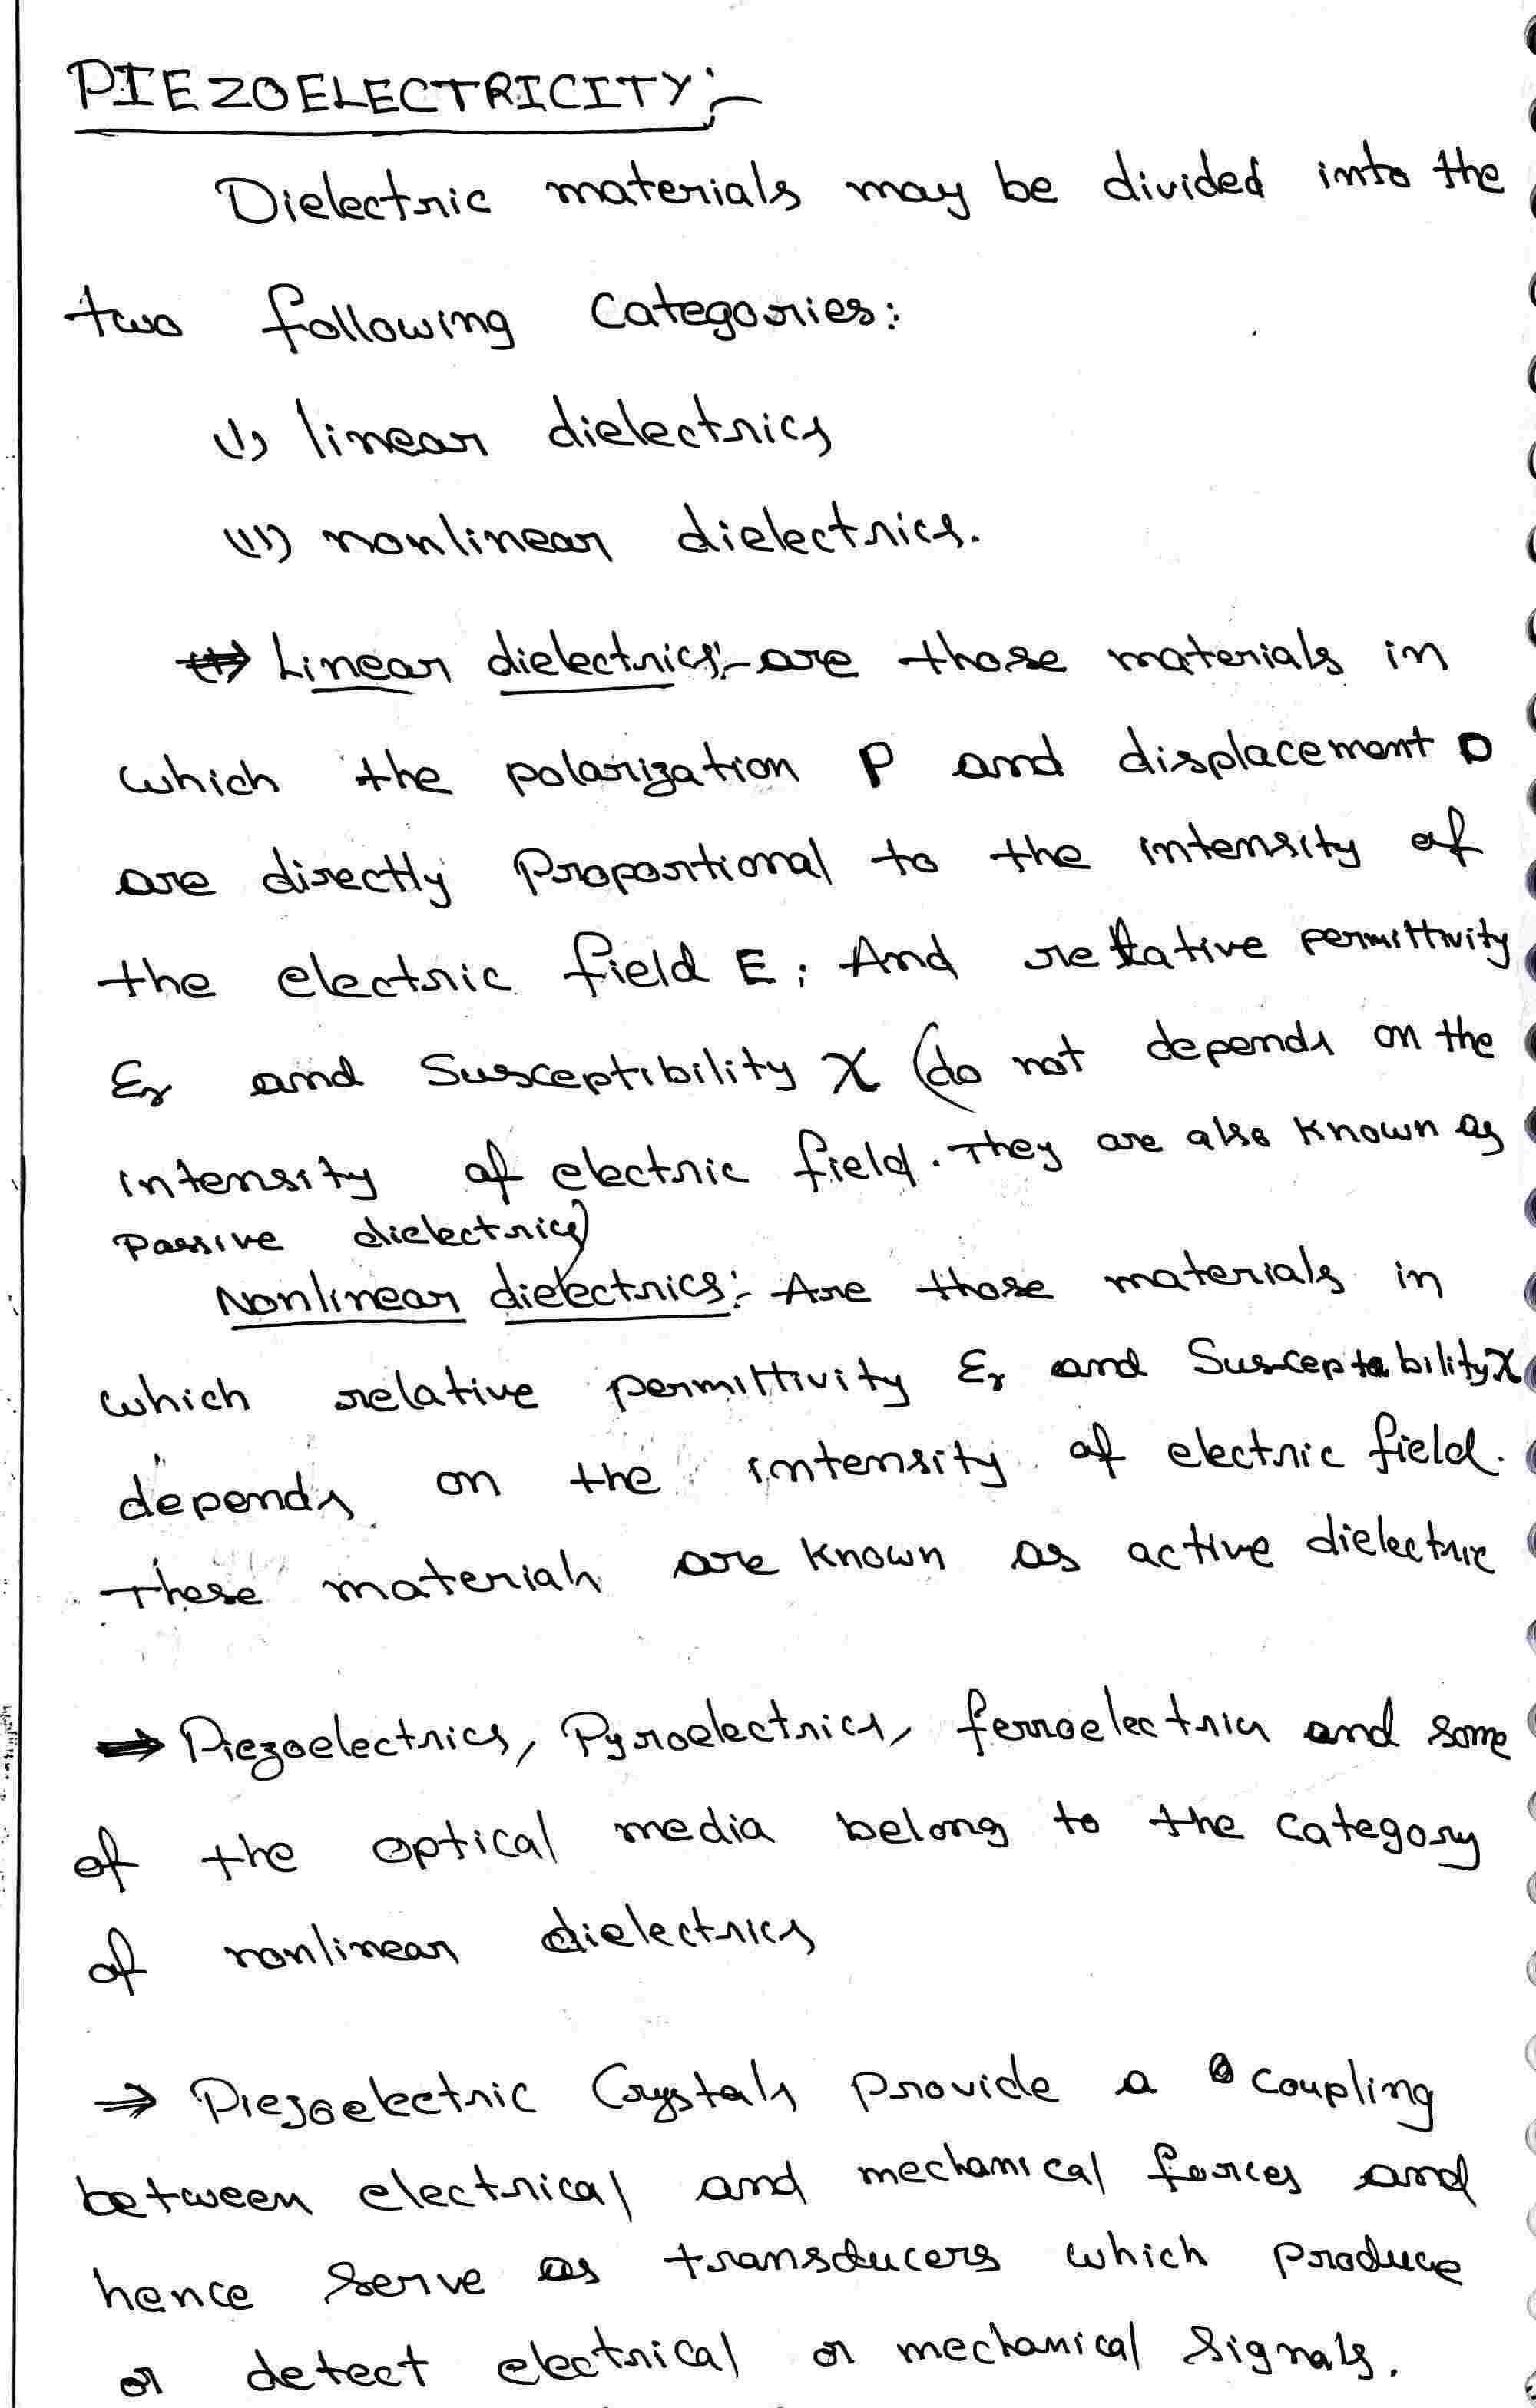 PIEZOELECTRICITY:-
Dielectric materials may be divided into the
two following categories:
(i) linear dielectrics
(ii) nonlinear dielectrics.
Linear dielectrics:- are those materials in
which the polarization P and displacement D
are directly proportional to the intensity of
the electric field E; And relative permittivity
εr and Susceptibility χ (do not depends on the
intensity of electric field. They are also known as
Passive dielectrics)
Nonlinear dielectrics:- Are those materials in
which relative permittivity εr and Susceptability χ
depends on the intensity of electric field.
These materials are known as active dielectric
⇒ Piezoelectrics, Pyroelectrics, ferroelectrics and some
of the optical media belong to the category
of nonlinear dielectrics
⇒ Piezoelectric Crystals provide a coupling
between electrical and mechanical forces and
hence serve as transducers which produce
or detect electrical or mechanical signals.